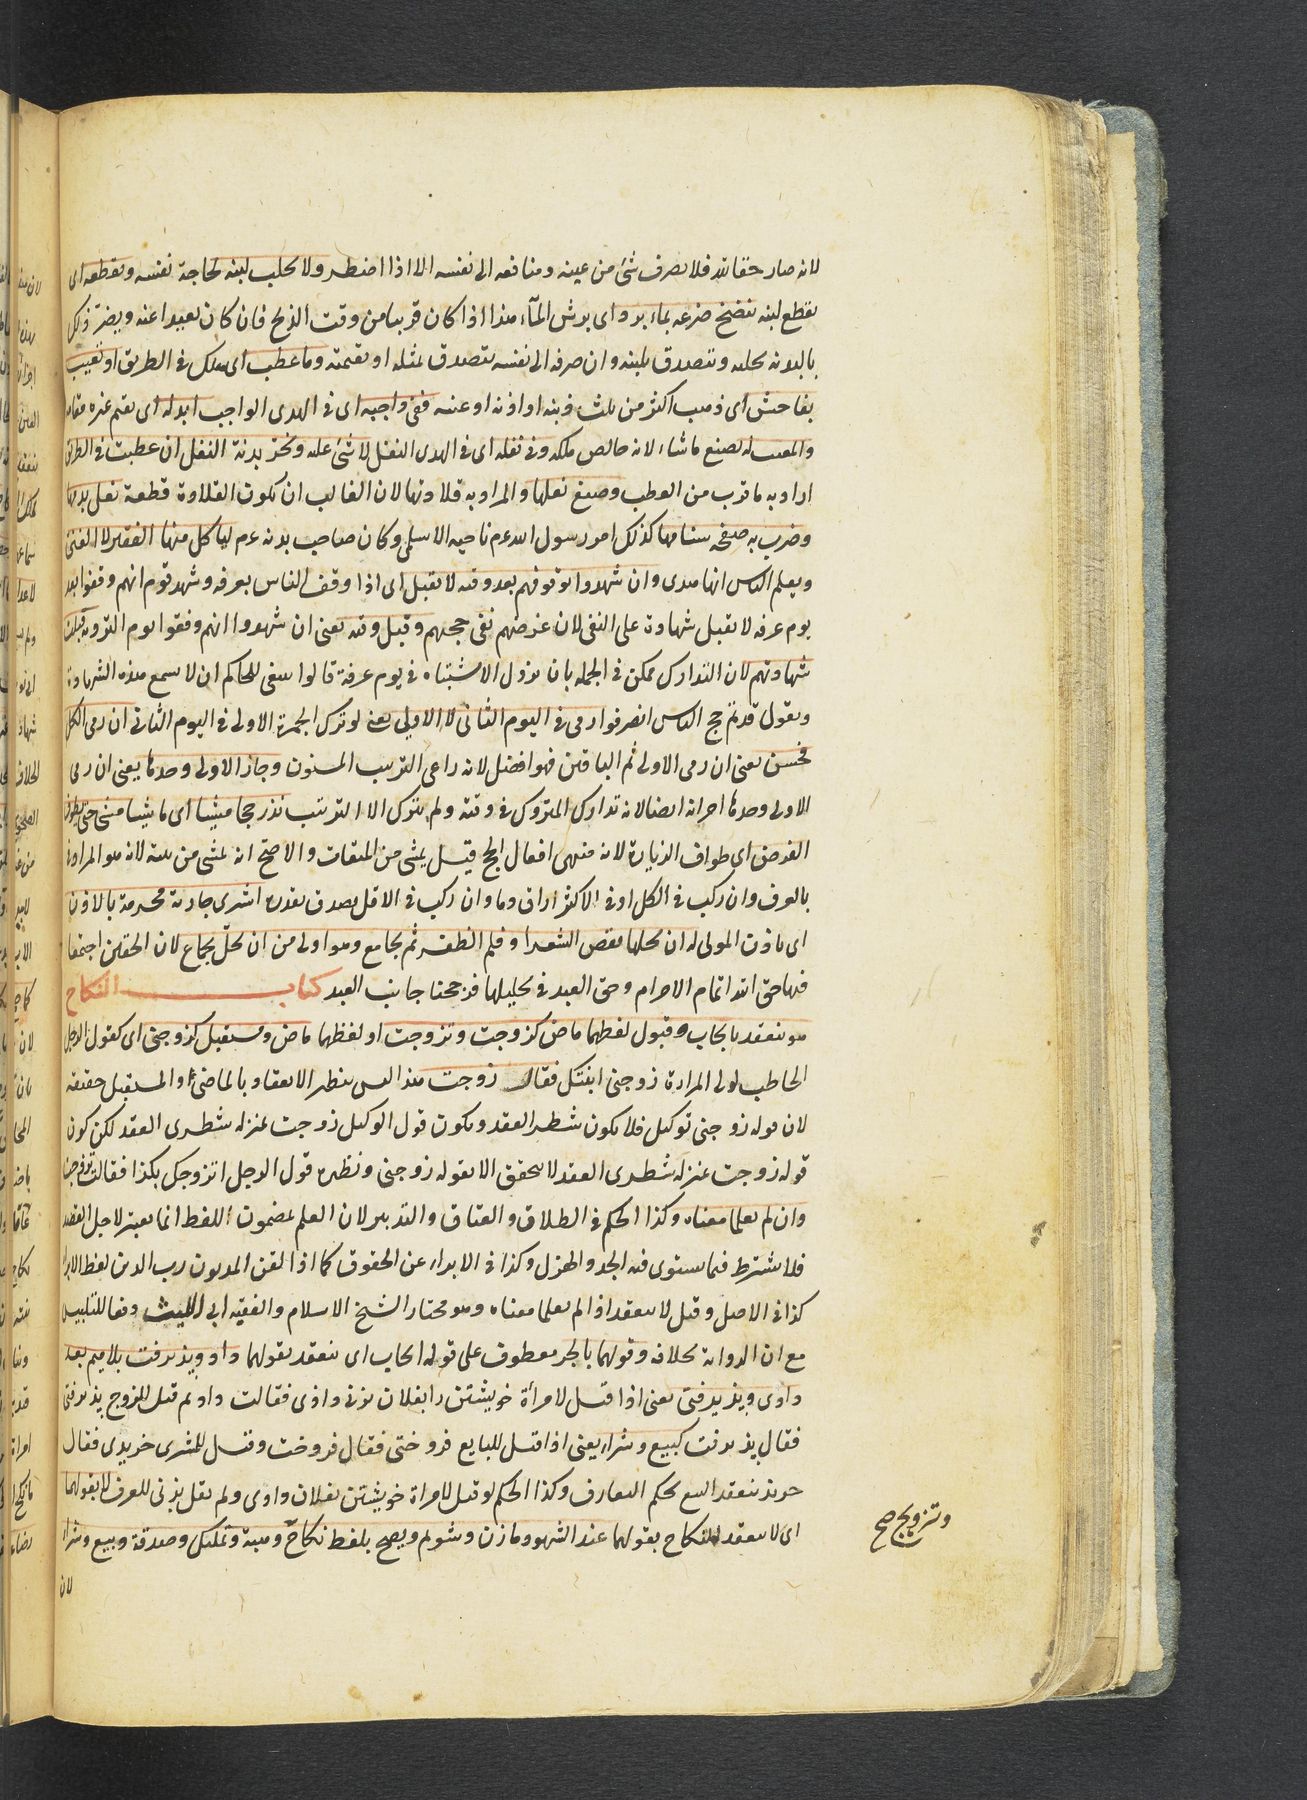 لانه صار حقا لله فلا يصرف شئ من عينه ومنافعه الى نفسه الا اذا اضطر ولا يحلب لبنه لحاجة نفسه ويقطعه اى
يقطع لبنه بنضح ضرعه بماء بارد اى برش الماء هذا اذا كان قريبا من وقت الذبح فان كان بعيدا عنه ويضر ذلك
بالبدنة يحلبه ويتصدق بلبنه وان صرفه الى نفسه يتصدق بمثله او بقيمته وما عطب اى هلك فى الطريق او تعيب
بفاحش اى ذهب اكثر من ثلث ذنبه او اذنه او عينه ففى واجبه اى فى الهدى الواجب ابدله اى يقيم غيره مقامه
والمعيب له يصنع ما شاء لانه خالص ملكه وفى نفله اى فى الهدى النفل لا شئ عليه ونحر بدنة النفل ان عطبت فى الطريق
اراد به ما قرب من العطب وصبغ نعلها والمراد به قلادتها لان الغالب ان يكون القلادة قطعة نعل بدمها
وضرب به صفحة سنامها كذلك امر رسول الله عم ناجية الاسلمى وكان صاحب بدنه عم لياكل منها الفقير لا الغنى
ويعلم الناس انها هدى وان شهدوا بوقوفهم بعد وقته لا يقبل اى اذا وقف الناس بعرفة وشهد قوم انهم وقفوا بعد
يوم عرفة لا يقبل شهادة على النفى لان غرضهم نفى حجهم وقبل وقته يعنى ان شهدوا انهم وقفوا يوم التروية قبلت
شهادتهم لان التدارك ممكن فى الجملة بان يزول الاشتباه فى يوم عرفة قالوا ينبغى للحاكم ان لا يسمع هذه الشهادة
ويقول قد تم حج الناس انصرفوا رمى فى اليوم الثانى لا الاولى يعنى لو ترك الجمرة الاولى فى اليوم الثانى ان رمى الكل
فحسن يعنى ان رمى الاولى ثم الباقين فهو افضل لانه راعى الترتيب المسنون وجاز الاولى وحدها يعنى ان رمى
الاولى وحدها اجزاه ايضا لانه تدارك المتروك فى وقته ولم يترك الا الترتيب نذر حجا مشيا اى ماشيا مشى حتى يطوف
الفرض اى طواف الزيارة لانه منتهى افعال الحج قيل يمشى من الميقات والاصح انه يمشى من بيته لانه هو المراد
بالعرف وان ركب فى الكل او فى الاكثر اراق دما وان ركب فى الاقل يصدق بقدره اشترى جارية محرمة بالاذن
اى باذن المولى له ان يحللها بقص الشعر او قلم الظفر ثم يجامع وهو اولى من ان يحلل بجماع لان الحقين اجتمعا
فيها حق الله اتمام الاحرام وحق العبد فى تحليلها فرجحنا جانب العبد كتاب النكاح
هو ينعقد بايجاب وقبول لفظهما ماض كزوجت وتزوجت او لفظهما ماض ومستقبل كزوجنى اى كقول الرجل
الخاطب لولى المرادة زوجنى ابنتك فقال زوجت هذا ليس بنظر الانعقاد بالماضى والمستقبل حقيقة
لان قوله زوجنى توكيل فلا يكون شطر العقد ويكون قول الوكيل زوجت بمنزلة شطرى العقد لكن كون
قوله زوجت بمنزلة شطرى العقد لا يتحقق الا بقوله زوجنى ونظيره قول الرجل اتزوجك بكذا فقالت
وان لم يعلما معناه وكذا الحكم فى الطلاق والعتاق والتدبير لان العلم بمضمون اللفظ انما يعتبر لاجل القصد
فلا يشترط فيما يستوى فيه الجد والهزل وكذا فى الابراء عن الحقوق كما اذا لقن المديون رب الدين لفظ الابراء
كذا فى الاصل وقيل لا ينعقد اذا لم يعلما معناه وهو مختار الشيخ الاسلام والفقيه ابى الليث دفعا للتلبيس
مع ان الرواية بخلافه وقولهما بالجر معطوف على قوله ايجاب اى ينعقد بقولهما داد وپذيرفت بلا ميم بعد
دادى وپذيرفتى يعنى اذا قيل لامرأة خويشتن را بفلان بزنى دادى فقالت داد ثم قيل للزوج پذيرفتى
فقال پذيرفت كبيع وشراء يعنى اذا قيل للبايع فروختى فقال فروخت وقيل للمشترى خريدى فقال
خريد ينعقد البيع بحكم التعارف وكذا الحكم لو قيل لامراة خويشتن بفلان دادى ولم يقل بزنى للعرف لا بقولهما
اى لا ينعقد النكاح بقولهما عند الشهود مازن وشوئم ويصح بلفظ نكاح وهبة وتمليك وصدقة وبيع وشراء
وتزويج صح
لان